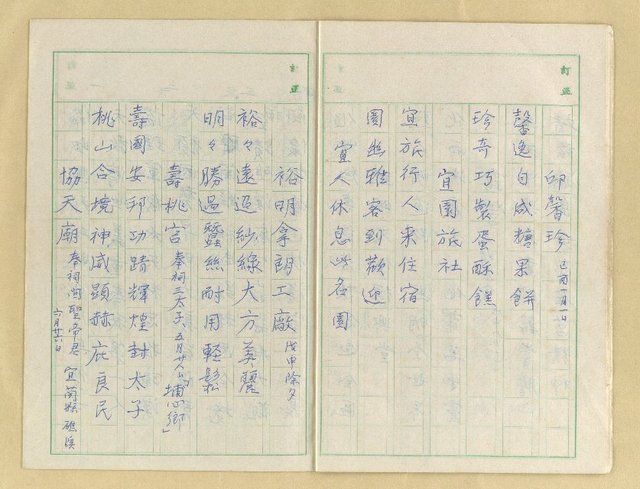 訂正
卯馨珍 己酉一月一日
馨逸自成糖果餅
珍奇巧製蛋酥饌
宜園旅社
宜旅行人来住宿
園幽雅客到歡迎
宜人休息此名園
訂正
裕明拿朗工廠 戊申除夕
裕々遠逅紗線大方美麗
明々勝過蠶絲耐用輕鬆
壽桃宮 奉祠三太子、五月廿八日「埔心鄉」
壽國安邦功蹟輝煌封太子
桃山合境神威顯赫庇良民
協天廟 奉祠関聖帝君 宜蘭縣礁溪
六月廿六日